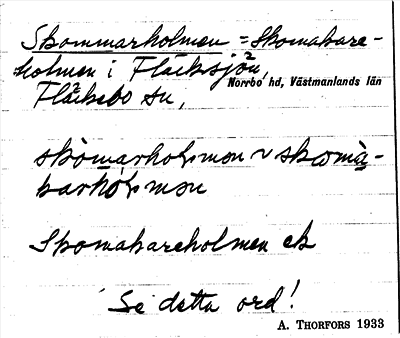 Skommarholmen = Skomakare-
holmen i Fläcksjön,
Norrbo hd, Västmanlands län
Fläckebo sn,
skòmarhol̥mən ~ skomà-
karhol̥mən
Skomakareholmen ek
Se detta ord!
A. THORFORS 1933